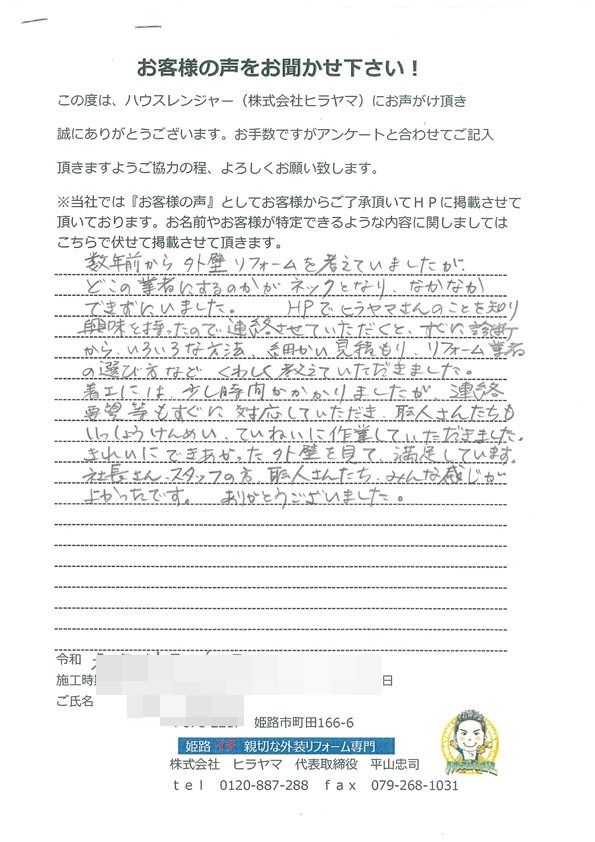 お客様の声をお聞かせ下さい！
この度は、ハウスレンジャー（株式会社ヒラヤマ）にお声がけ頂き
誠にありがとうございます。お手数ですがアンケートと合わせてご記入
頂きますようご協力の程、よろしくお願い致します。
※当社では『お客様の声』としてお客様からご了承頂いてＨＰに掲載させて
頂いております。お名前やお客様が特定できるような内容に関しましては
こちらで伏せて掲載させて頂きます。
数年前から外壁リフォームを考えていましたが、
どこの業者にするのかがネックとなり、なかなか
できずにいました。 HPでヒラヤマさんのことを知り
興味を持ったので連絡させていただくと、すぐに診断
から、いろいろな方法、細かい見積もり、リフォーム業者
の選び方など くわしく教えていただきました。
着工には少し時間がかかりましたが 連絡
要望等もすぐに対応していただき、職人さんたちも
いっしょうけんめい、ていねいに作業していただきました。
きれいにできあがった外壁を見て、満足しています。
社長さん、スタッフの方、職人さんたち、みんな感じが
よかったです。 ありがとうございました。
令和
施工時期 日
ご氏名
姫路市町田166-6
姫路 イチ 親切な外装リフォーム専門
株式会社 ヒラヤマ 代表取締役 平山忠司
ｔｅｌ 0120-887-288 ｆａｘ 079-268-1031